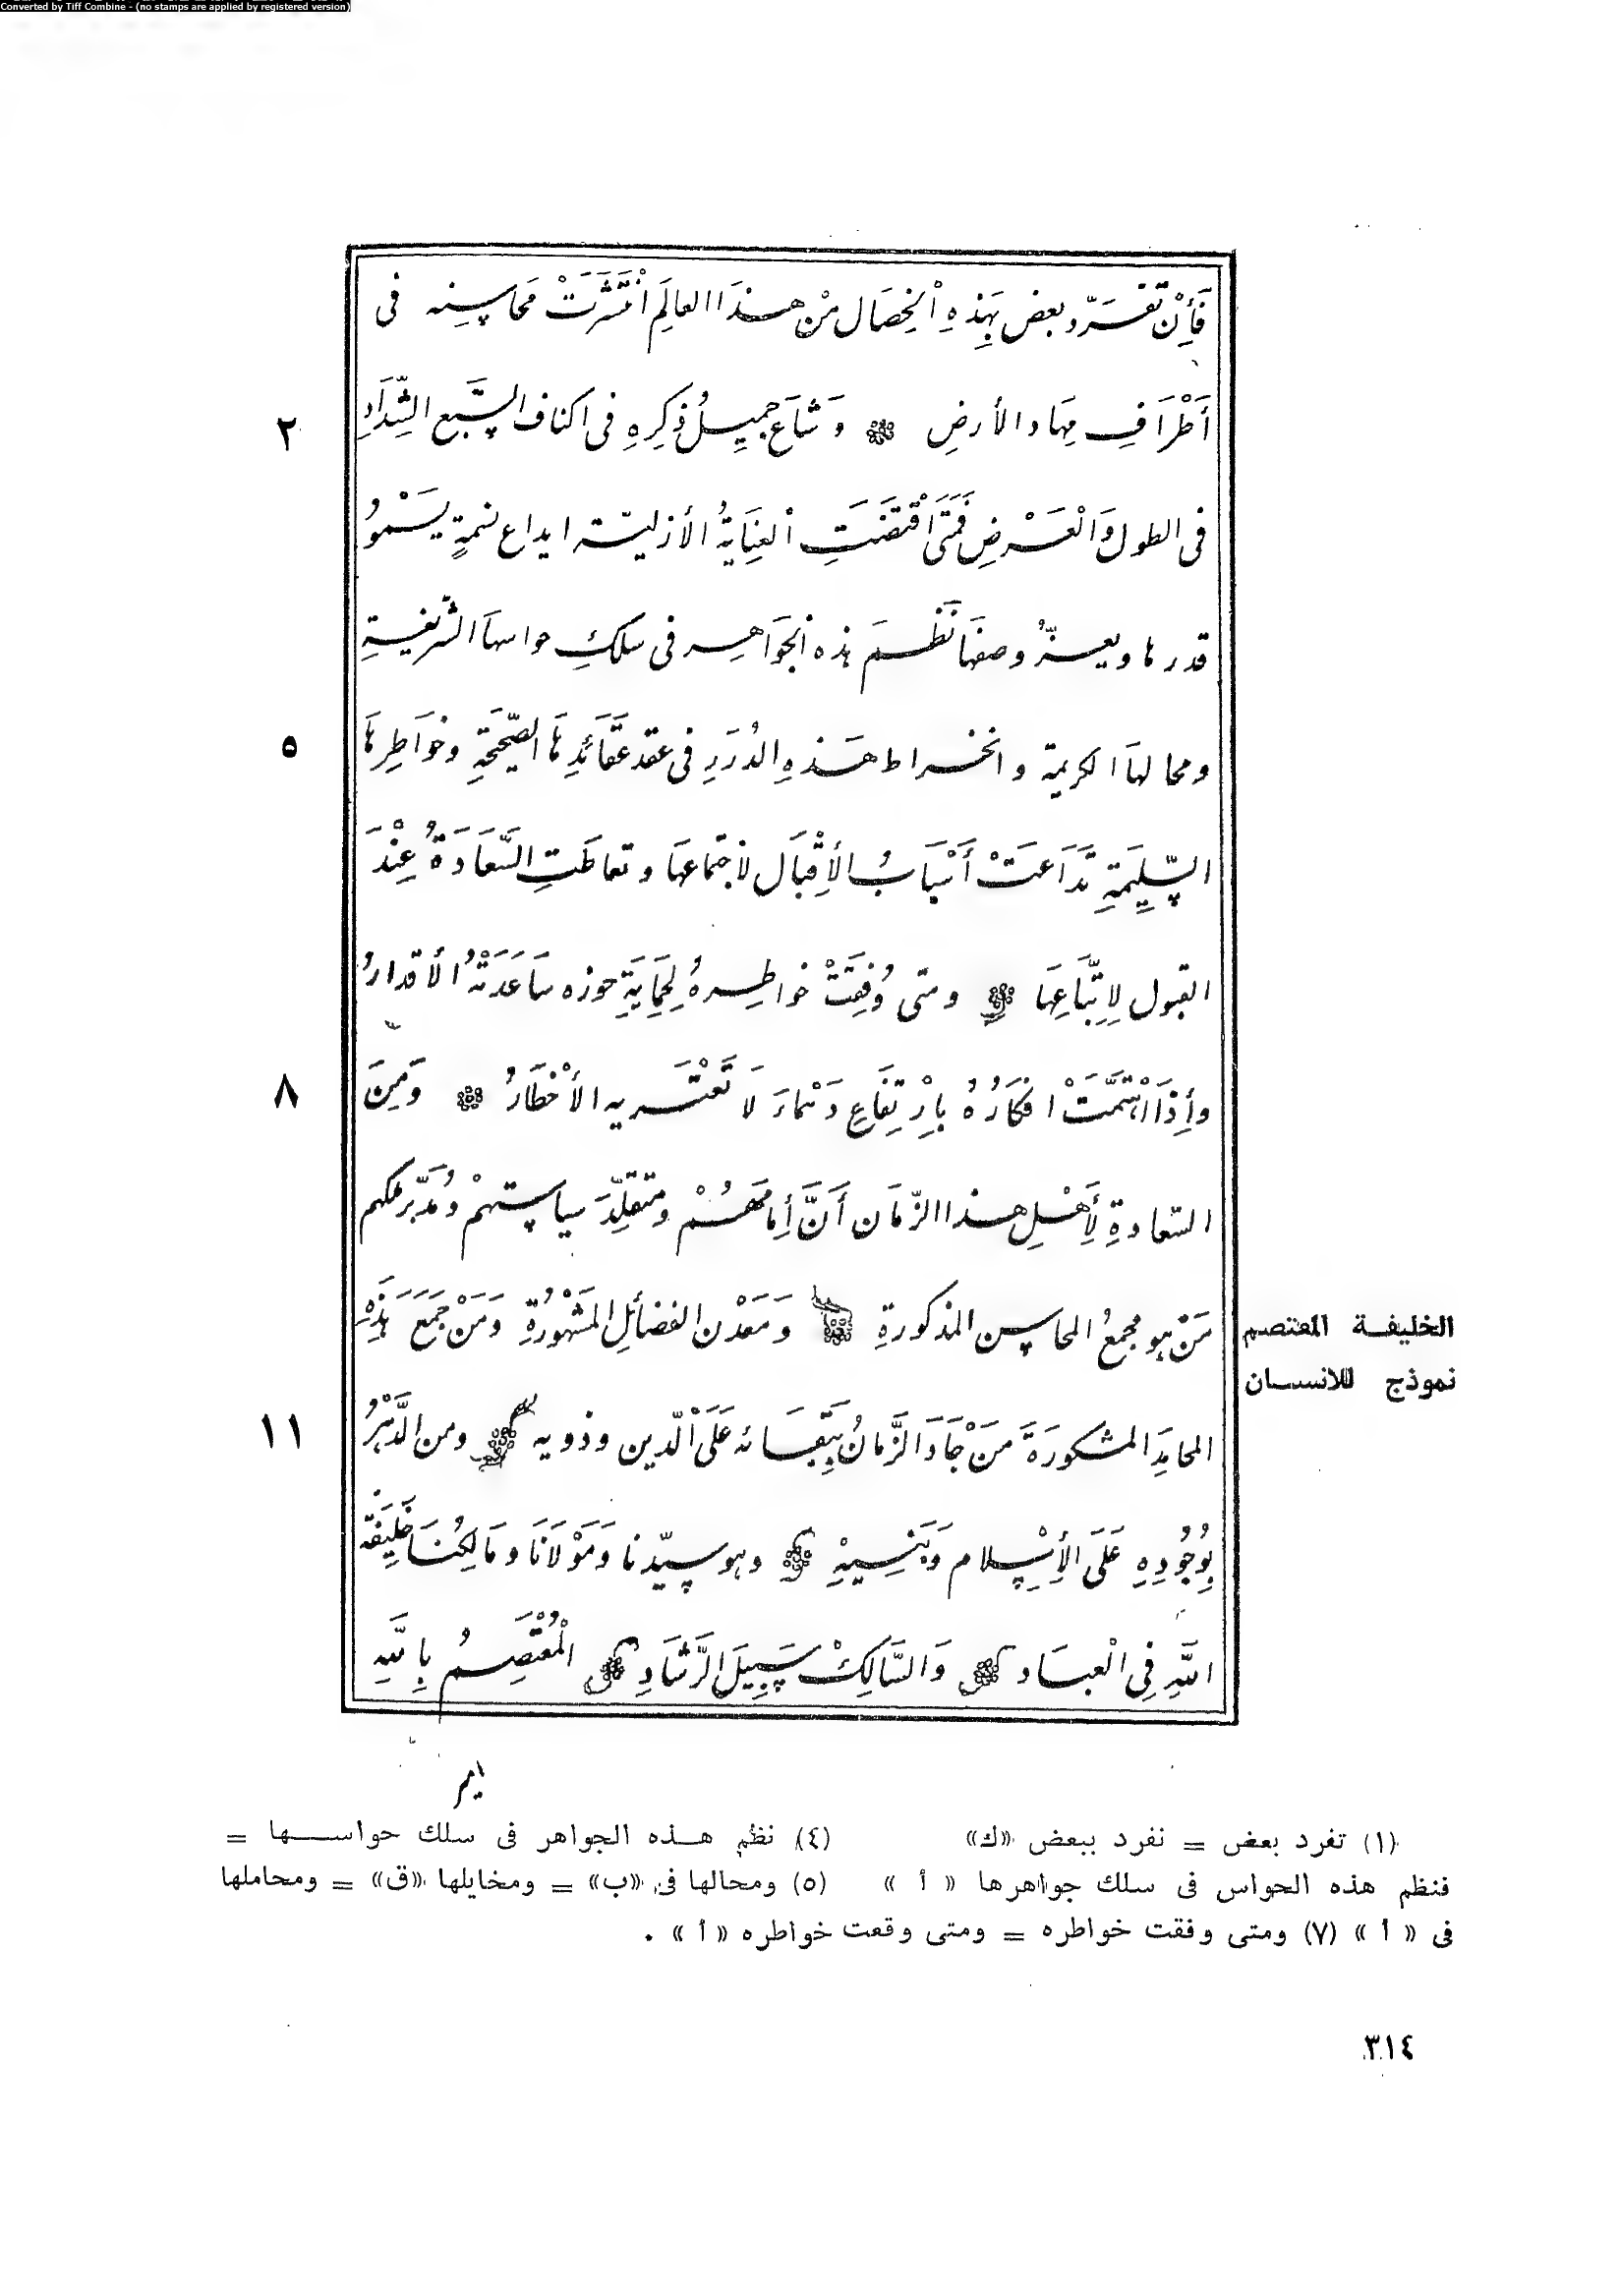 Converted by Tiff Combine - (no stamps are applied by registered version)
فَأِنْ تَفَرَّد بعض بِهَذِهِ اْلخِصَال مْن هـذَا العالَمِ انْتَشَرَتْ مَحَاسِنِه فى
أَطْرَافِ مِهَاد الأرضِ وَشَاعَ جَمِيِلُ ذِكِرِهِ فى اكناف السَّبع الشِّدَاَدِ
٢
فى الطول وَالْعَـرْضِ فَمَتَى اَقْتَضَتِ اْلعِنَايَةُ الأزليّـة ايداع نسمةٍ يَسْمُو
قدرها ويعـزُّ وصفهَا نَظْـمَ هذه اْلجَوَاهِـر فى سلكِ حواسهاَ الشَّريفـةِ
ومحالهاَ الكريمة وانخـراط هَـذِهِ الدُرَرِ فى عقد عَقَائِدِهَا الصَّحِيحَةِ وخَواَطِرِهَا
٥
السَّلِيِمَةِ تَدَاعَتْ أَسْبَابُ الأِقْبَال لأجتماعهَا وتعاطَتِ السَّعَادَةُ عِنْدَ
القبول لِاتِّبَاعِهَا ومتى وُفِقَتْ خواطِـرهُ لِحِمَايَةِ حوزه سَاعَدَتْهُ الأقدارُ
وأِذَا اهْتَمَّتْ افكَارُهُ بِارْتِفَاعِ دَسْمَاءَ لَا تَعْتَـريه الأْخْطَارُ وَمِنَ
٨
السَّعادةِ لِأَهْـلِ هـذا الزَّمَان أَنَّ أِمامَهُـمْ ومتقلِّدَ سياستهمْ ومُدَبّر ملكهم
مَنْ هو مجمعُ المحاسـن المذكورةِ وَمَعَدْن الفضائلِ المَشْهُورَةِ وَمَنْ جَمَعَ هَذِهِ
الخليفـة المعتصم
نموذج للانسـان
المحامِدَ المشكورَةَ مَنْ جَادَ الزَّمانُ بِبَقَـائه عَلَى الّدين وذويه ومن الدَّهْرُ
١١
بِوُجُودِهِ عَلَى الأِسْلام وَبَنِيـهِ وهو سيّدنا وَمَوْلَانَا وَمَالِكُنَا خَلِيَفَة
اللَّهِ فِى الْعبـاد وَالسَّالِكْ سَبِيلَ الرَّشَادِ الْمُعْتَصِـمُ بِاللَّهِ
(١) تفرد بعض = نفرد ببعض «ك» (٤) نظم هـذه الجواهر فى سلك حواسـها =
فنظم هذه الحواس فى سلك جواهرها « أ » (٥) ومحالها فى «ب» = ومخايلها «ق» = ومحاملها
فى « أ » (٧) ومتى وفقت خواطره = ومتى وقعت خواطره « أ » .
٣١٤